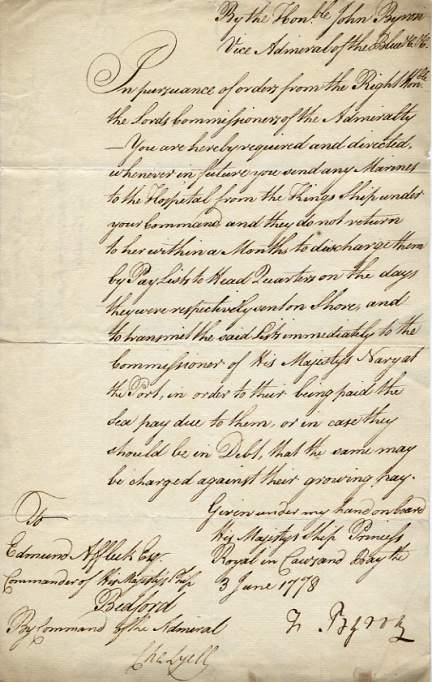 By the Hon.ble John Byron
Vice Admiral of the Blue &c &c.
In pursuance of orders from the Right Hon.ble
the Lords Commissioners of the Admiralty
—You are hereby required and directed,
whenever in future you send any Marines
to the Hospital from the Kings Ship under
your Command and they do not return
to her within a Month, to discharge them
by Pay Lists to Head Quarters on the days
they were respectively sent on Shore, and
to transmit the said Lists immediately to the
Commissioner of His Majestys Navy at
the Port, in order to their being paid the
Sea pay due to them, or in case they
should be in Debt, that the same may
be charged against their growing pay.
Given under my hand on board
His Majestys Ship Princess
Royal in Cawsand Bay the
3 June 1778
J Byron
To
Edmund Affleck Esqr
Commander of His Majestys Ship
Bedford
By Command of the Admiral
Cha Lyell